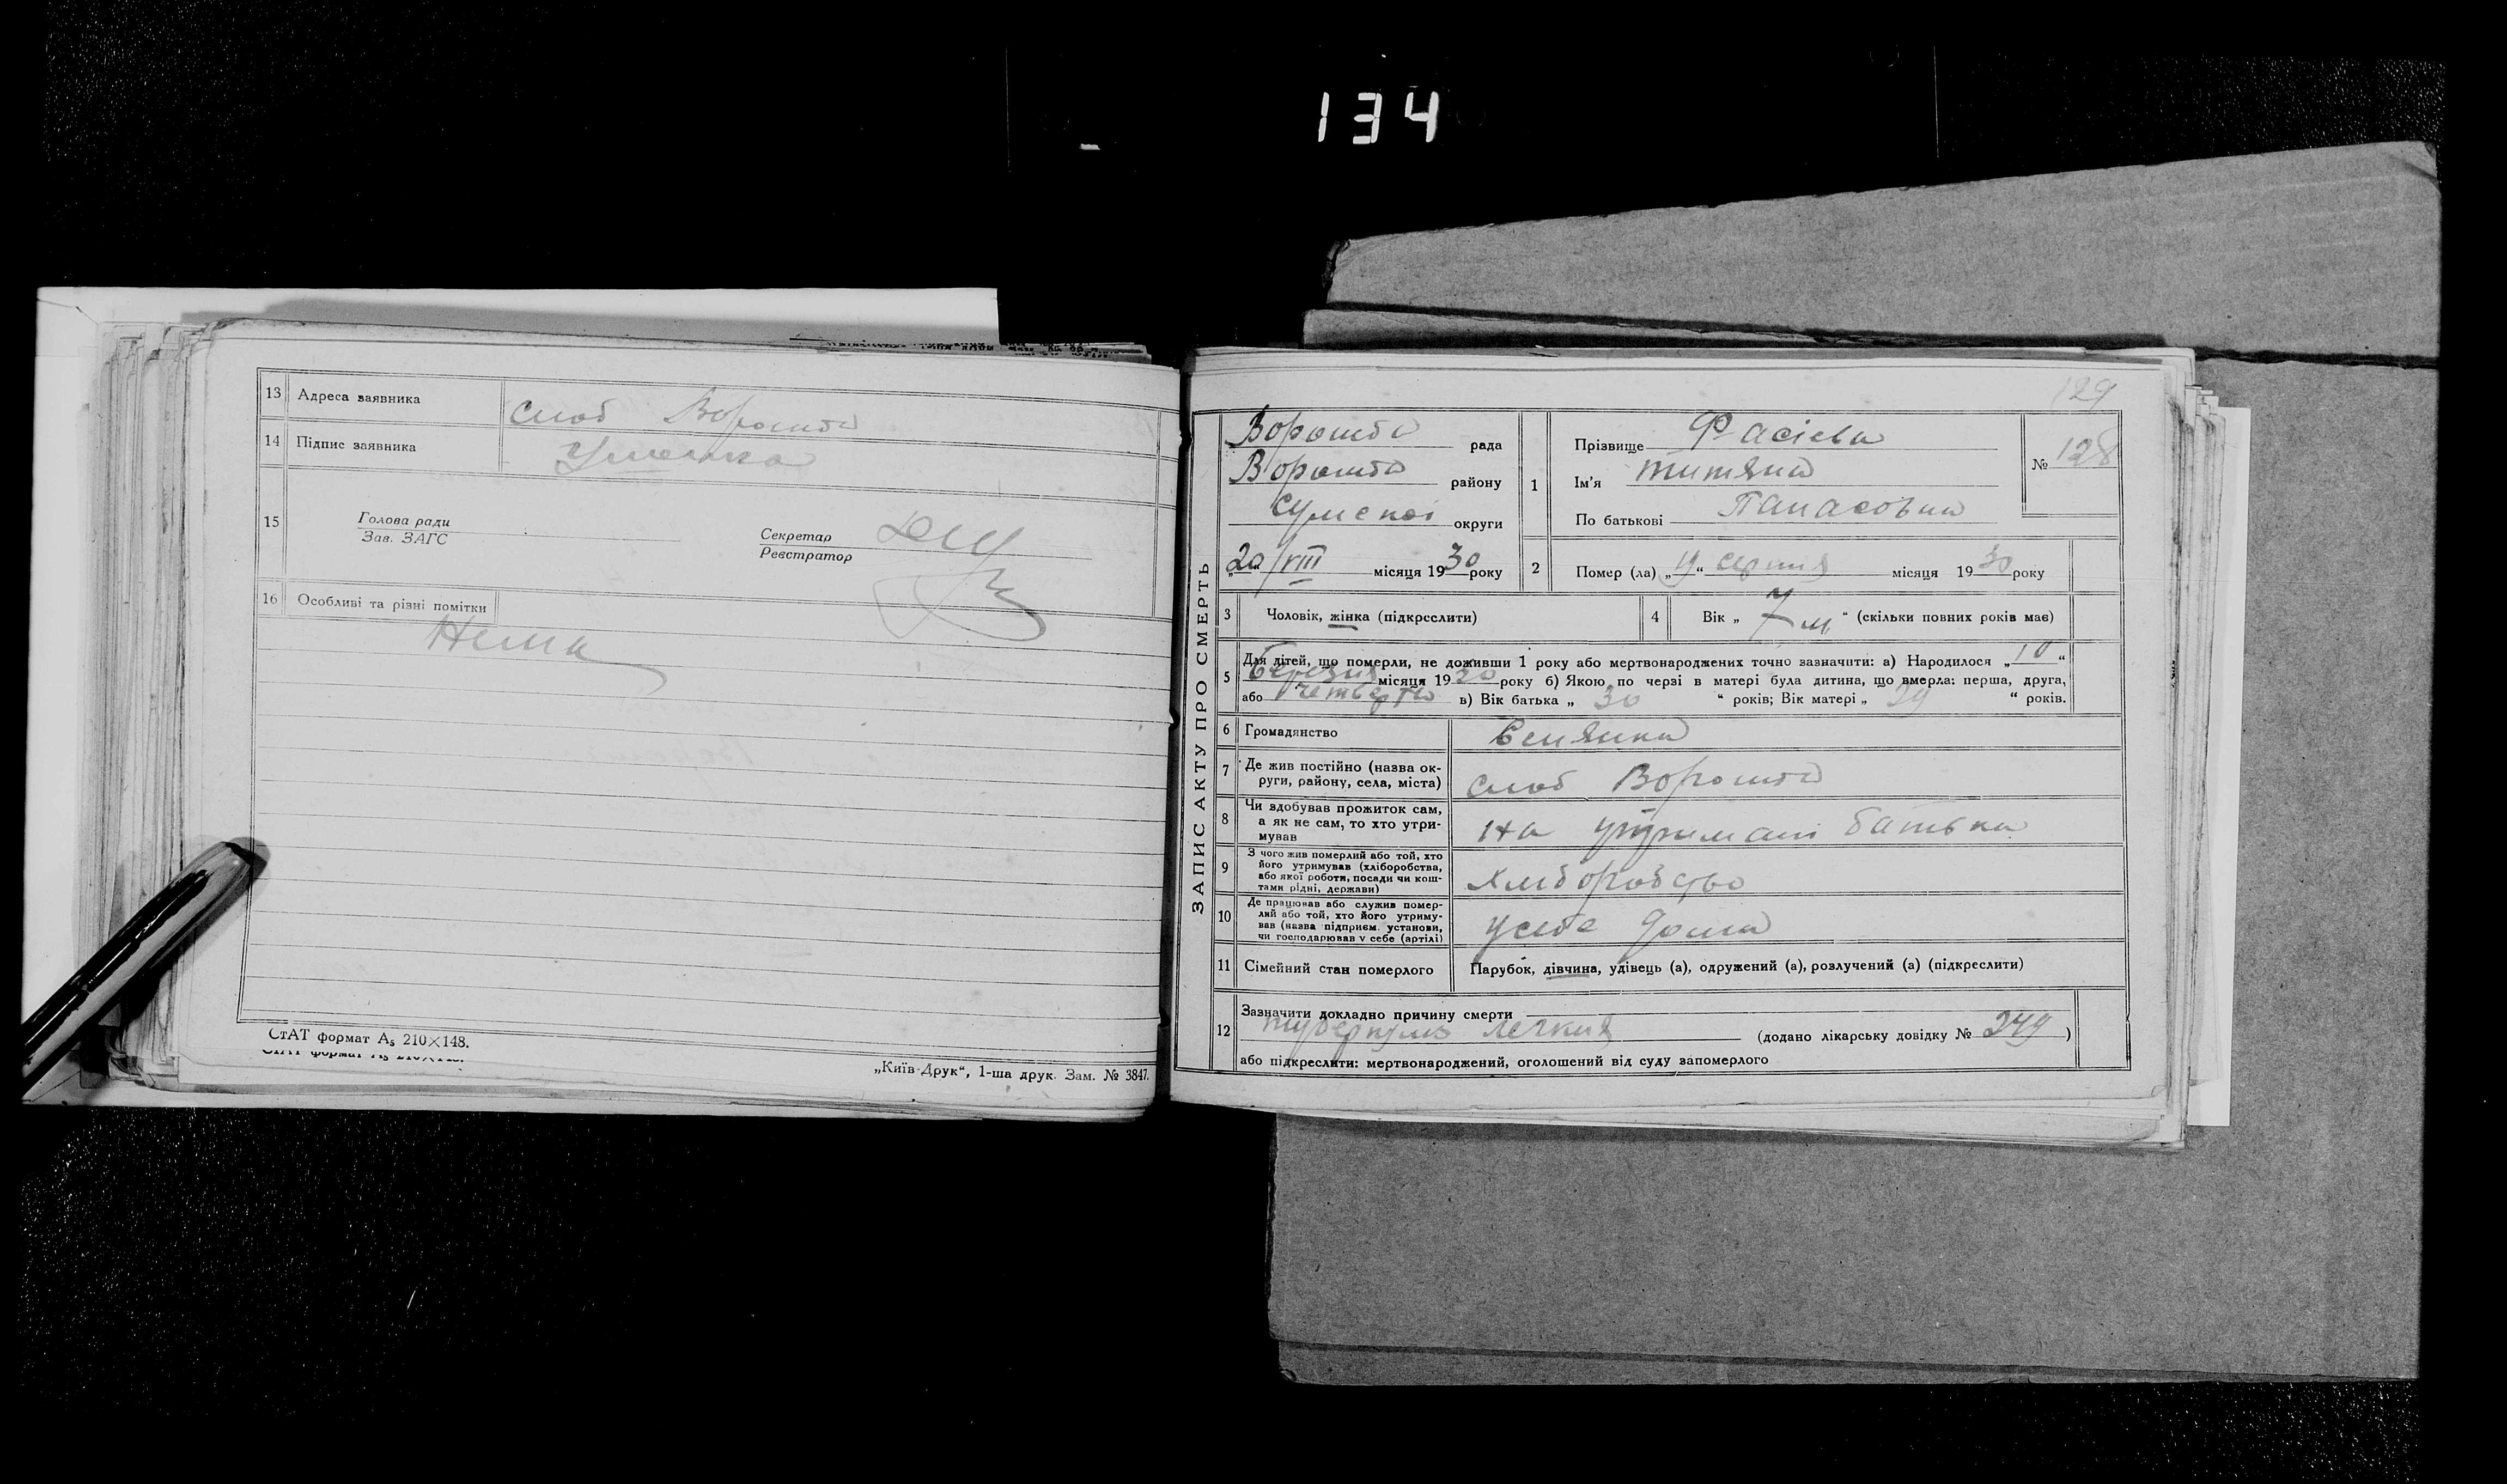 134
13 Адреса заявника слоб Ворожба
14 Підпис заявника
15 Голова ради
Зав. ЗАГС
Секретар
Реєстратор
16 Особливі та різні помітки
Нема
СтАТ формат А₅ 210×148.
„Київ-Друк“, 1-ша друк. Зам. № 3847.
129
ЗАПИС АКТУ ПРО СМЕРТЬ
Ворожба рада
Ворожба району
Сумської округи
„20“ VIII місяця 1930 року
1 Прізвище Фасієва
Ім'я Титяна
По батькові Панасовна
№ 128
2 Помер (ла) „19“ серпня місяця 1930 року
3 Чоловік, жінка (підкреслити)
4 Вік „ 7 м “ (скільки повних років має)
5 Для дітей, що померли, не доживши 1 року або мертвонароджених точно зазначити: а) Народилося „10“
березня місяця 1930 року б) Якою по черзі в матері була дитина, що вмерла: перша, друга,
або четверта в) Вік батька „ 30 “ років; Вік матері „ 29 “ років.
6 Громадянство Селянка
7 Де жив постійно (назва ок-
руги, району, села, міста) слоб Ворожба
8 Чи здобував прожиток сам,
а як не сам, то хто утри-
мував На утримані батька
9 З чого жив померлий або той, хто
його утримував (хліборобства,
або якої роботи, посади чи кош-
тами рідні, держави) Хліборобство
10 Де працював або служив помер-
лий або той, хто його утриму-
вав (назва підприєм. установи,
чи господарював у себе (артілі) У себе дома
11 Сімейний стан померлого Парубок, дівчина, удівець (а), одружений (а), розлучений (а) (підкреслити)
12 Зазначити докладно причину смерти
туберкульз легкия (додано лікарську довідку № 249 )
або підкреслити: мертвонароджений, оголошений від суду запомерлого